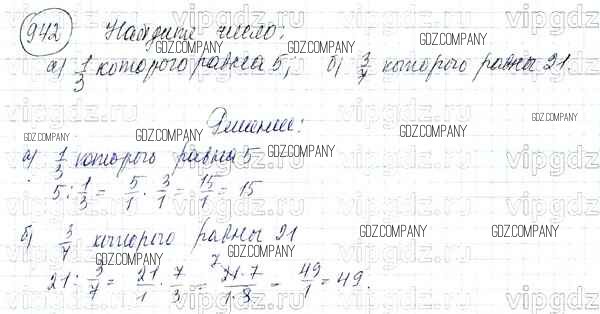 942 Найдите число:
а) 1/3 которого равна 5, б) 3/7 которого равны 21
Решение:
а) 1/3 которого равна 5
5 : 1/3 = 5/1 · 3/1 = 15/1 = 15
б) 3/7 которого равны 21
21 : 3/7 = 21/1 · 7/3 = 21·7/1·3 = 49/1 = 49.